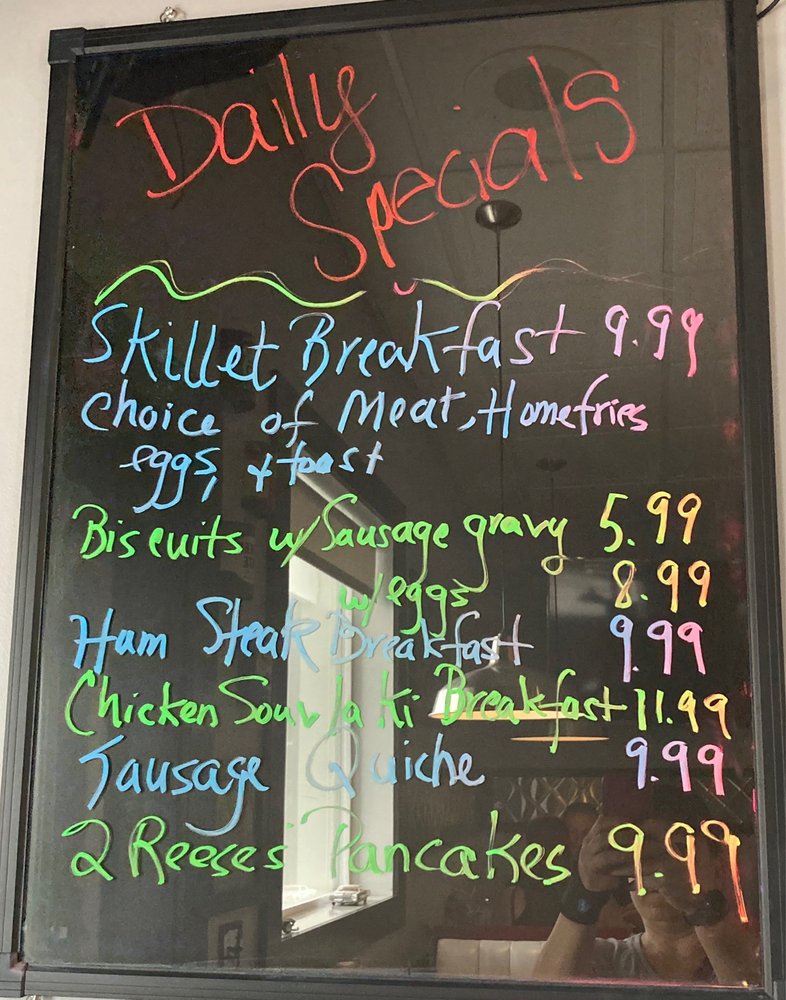 Daily
Specials
Skillet Breakfast 9.99
choice of Meat, Homefries
eggs, + toast
Biscuits w/ Sausage gravy 5.99
w/eggs 8.99
Ham Steak Breakfast 9.99
Chicken Souvlaki Breakfast 11.99
Sausage Quiche 9.99
2 Reeses' Pancakes 9.99